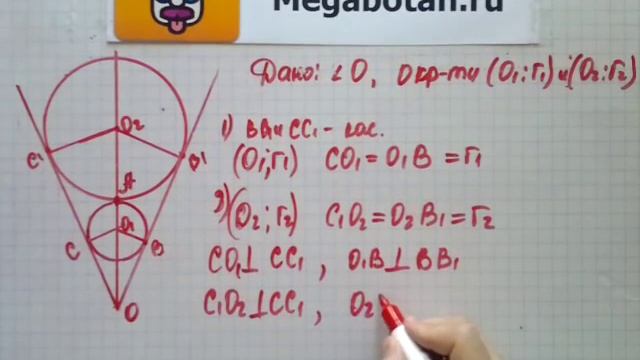 Megabotan.ru
Дано: ∠O, окр-ти (O₁;r₁) и (O₂;r₂)
1) BB₁ и CC₁ - кас.
(O₁;r₁) CO₁ = O₁B = r₁
2) (O₂;r₂) C₁O₂ = O₂B₁ = r₂
CO₁ ⊥ CC₁, O₁B ⊥ BB₁
C₁O₂ ⊥ CC₁, O₂
O₂
C₁
B₁
A
O₁
C
B
O